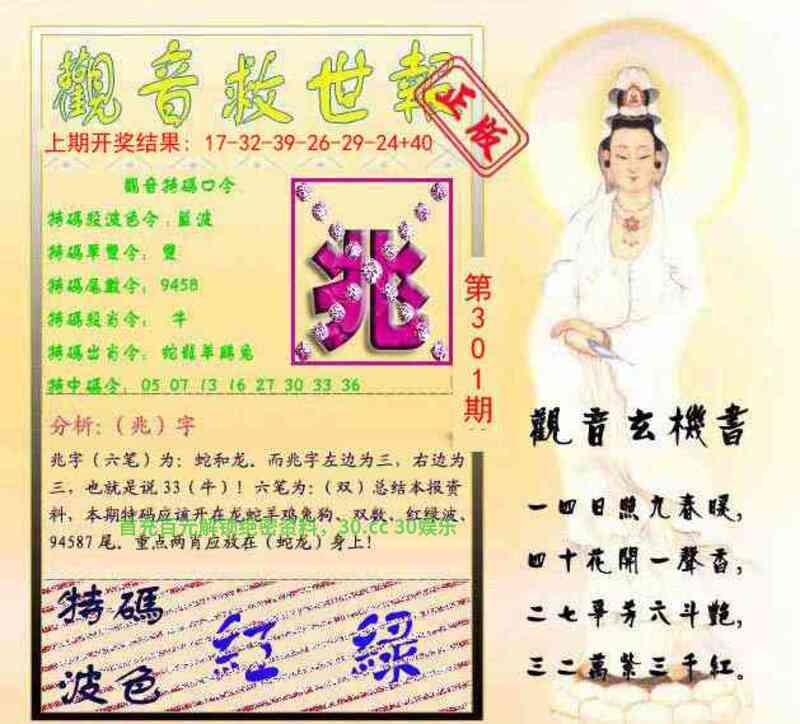 觀音救世報
正版
上期开奖结果：17-32-39-26-29-24+40
觀音特碼口令
特碼殺波色令：藍波
特碼單雙令：雙
特碼尾數令：9458
特碼殺肖令：牛
特碼出肖令：蛇龍羊鷄兔
特中碼令：05 07 13 16 27 30 33 36
兆
第301期
分析：（兆）字
兆字（六笔）为：蛇和龙．而兆字左边为三，右边为
三，也就是说33（牛）！六笔为：（双）总结本报资
料，本期特码应该开在龙蛇羊鸡兔狗、双数、红绿波、
首充百元解锁绝密资料，30.cc 30娱乐
94587尾．重点两肖应放在（蛇龙）身上！
特碼
波色
紅 綠
觀音玄機書
一四日照九春暖，
四十花開一聲香，
二七草芳六斗艷，
三二萬紫三千紅。